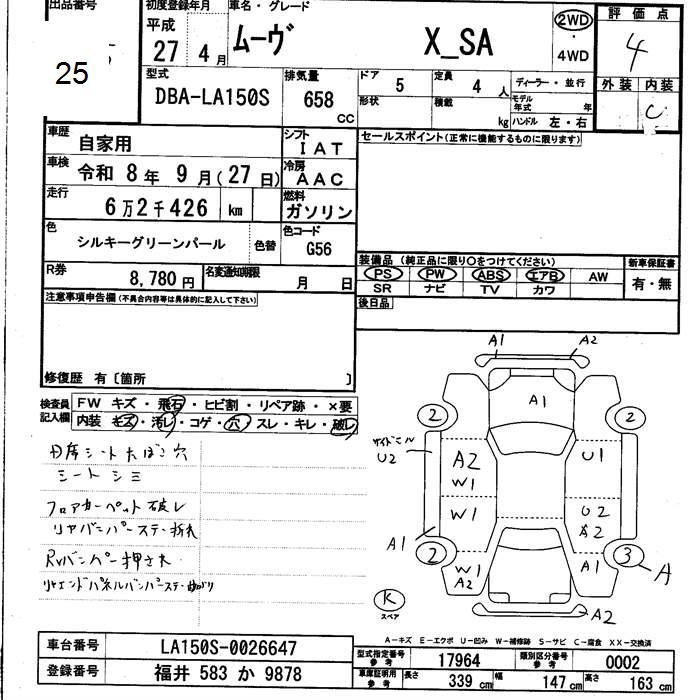 出品番号 初度登録年月 車名・グレード 評価点
25 平成 27年 4月 ムーヴ X_SA 2WD・4WD 4
型式 排気量 ドア 5 定員 4人 ディーラー・並行 外装 内装
DBA-LA150S 658cc 形状 積載 kg モデル年式 年 C
ハンドル 左・右
車歴 自家用 シフト IAT セールスポイント(正常に機能するものに限ります)
車検 令和 8年 9月(27日) 冷房 AAC
走行 6万2千426 km 燃料 ガソリン
色 シルキーグリーンパール 色替 色コード G56
装備品(純正品に限り○をつけてください) 新車保証書
PS PW ABS エアB AW 有・無
SR ナビ TV カワ
R券 8,780円 名変通知期限 月 日
後日品
注意事項申告欄(不具合内容等は具体的に記入して下さい)
修復歴 有〔箇所 〕
検査員記入欄 FW キズ・飛石・ヒビ割・リペア跡・×要
内装 キズ・汚レ・コゲ・穴・スレ・キレ・破レ
シートシミ
フロアカーペット破レ
リアバンパーステー折れ
Rrバンパー押され
リヤエンドパネルバンパーステー曲がり
A1 A2
A1
2 2
サイドシル
U2 A2 U1
W1
W1 U2
A2
A1 2 W1 A1 3 A
A2
K スペア A2
A-キズ E-エクボ U-凹み W-補修跡 S-サビ C-腐食 XX-交換済
車台番号 LA150S-0026647
登録番号 福井 583 か 9878
型式指定番号 参考 17964 類別区分番号 参考 0002
車庫証明用 参考 長さ 339cm 幅 147cm 高さ 163cm